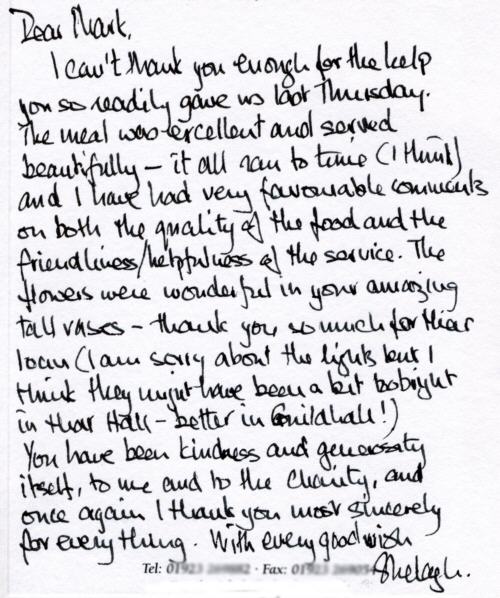 Dear Mark,
I can't thank you enough for the help
you so readily gave us last Thursday.
The meal was excellent and served
beautifully – it all ran to time (I think)
and I have had very favourable comments
on both the quality of the food and the
friendliness/helpfulness of the service. The
flowers were wonderful in your amazing
tall vases – thank you so much for their
loan (I am sorry about the lights but I
think they might have been a bit too bright
in their Hall – better in Guildhall!)
You have been kindness and generosity
itself, to me and to the Charity, and
once again I thank you most sincerely
for everything. With every good wish
Shelagh.
Tel: 01923 · Fax: 01923